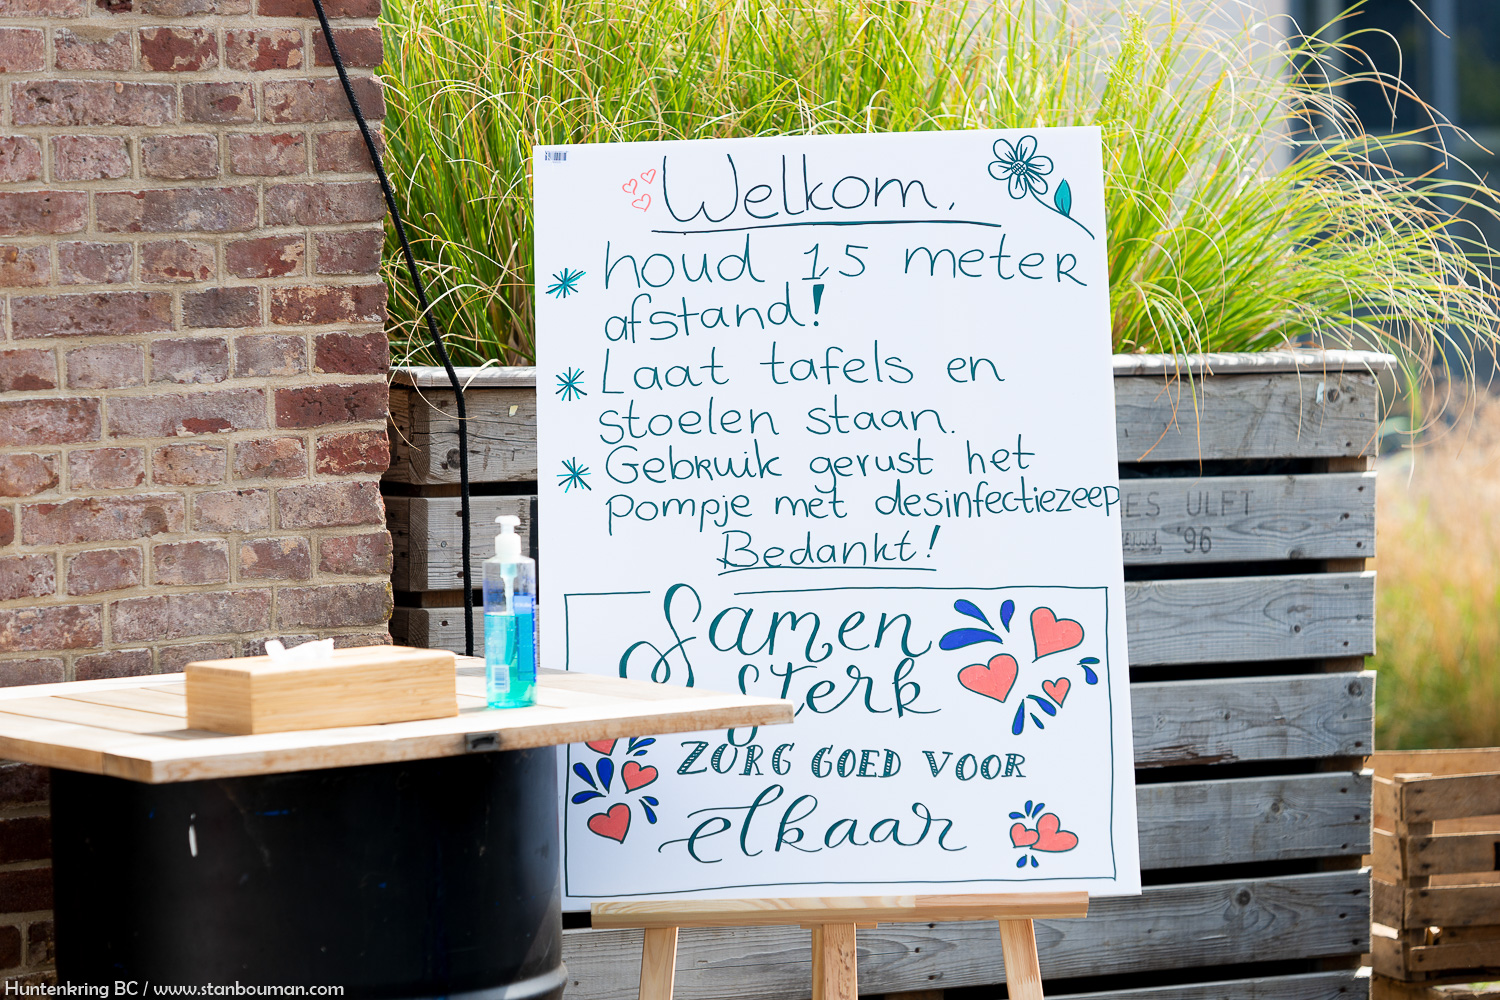 Welkom,
houd 15 meter
afstand!
Laat tafels en
stoelen staan.
Gebruik gerust het
pompje met desinfectiezeep
Bedankt!
Samen
sterk
ZORG GOED VOOR
elkaar
ES ULFT
'96
Huntenkring BC / www.stanbouman.com